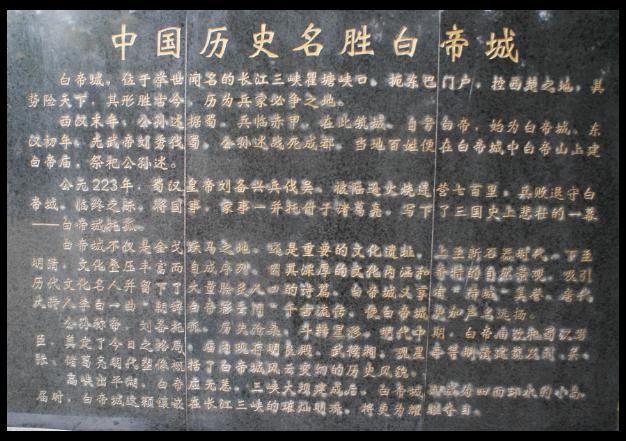 中国历史名胜白帝城
白帝城，位于举世闻名的长江三峡瞿塘峡口。扼东巴门户，控西楚之地，其
势险天下，其形胜古今，历为兵家必争之地。
西汉末年，公孙述据蜀，兵临赤甲，在此筑城，自号白帝，始为白帝城。东
汉初年，光武帝刘秀伐蜀，公孙述战死成都。当地百姓便在白帝城中白帝山上建
白帝庙，祭祀公孙述。
公元223年，蜀汉皇帝刘备兴兵伐吴，被陆逊火烧连营七百里，兵败退守白
帝城。临终之际，将国事、家事一并托付于诸葛亮，写下了三国史上悲壮的一幕
——白帝城托孤。
白帝城不仅是金戈跃马之地，是重要的文化遗址。上至新石器时代，下至
明清，文化叠压丰富而自成序列。其深厚的文化内涵和奇特的自然景观，吸引
历代文化名人并留下了大量脍炙人口的诗篇。白帝城又享有"诗城"美誉。唐代
大诗人李白一曲"朝辞白帝彩云间"千古流传，使白帝城更和声名远扬。
公孙称帝，刘备托孤，历史沧桑，斗转星移，明代中期，白帝庙改祀蜀汉
臣，奠定了今日之格局。庙内现有明良殿、武侯祠、观星亭等明清建筑及刘、关、
张、诸葛亮明代塑像概括了白帝城风云变幻的历史风貌。
高峡出平湖，白帝应无恙。三峡大坝建成后，白帝城为四面环水的小岛。
届时，白帝城这颗镶嵌在长江三峡的璀灿明珠，将更为耀眼夺目。